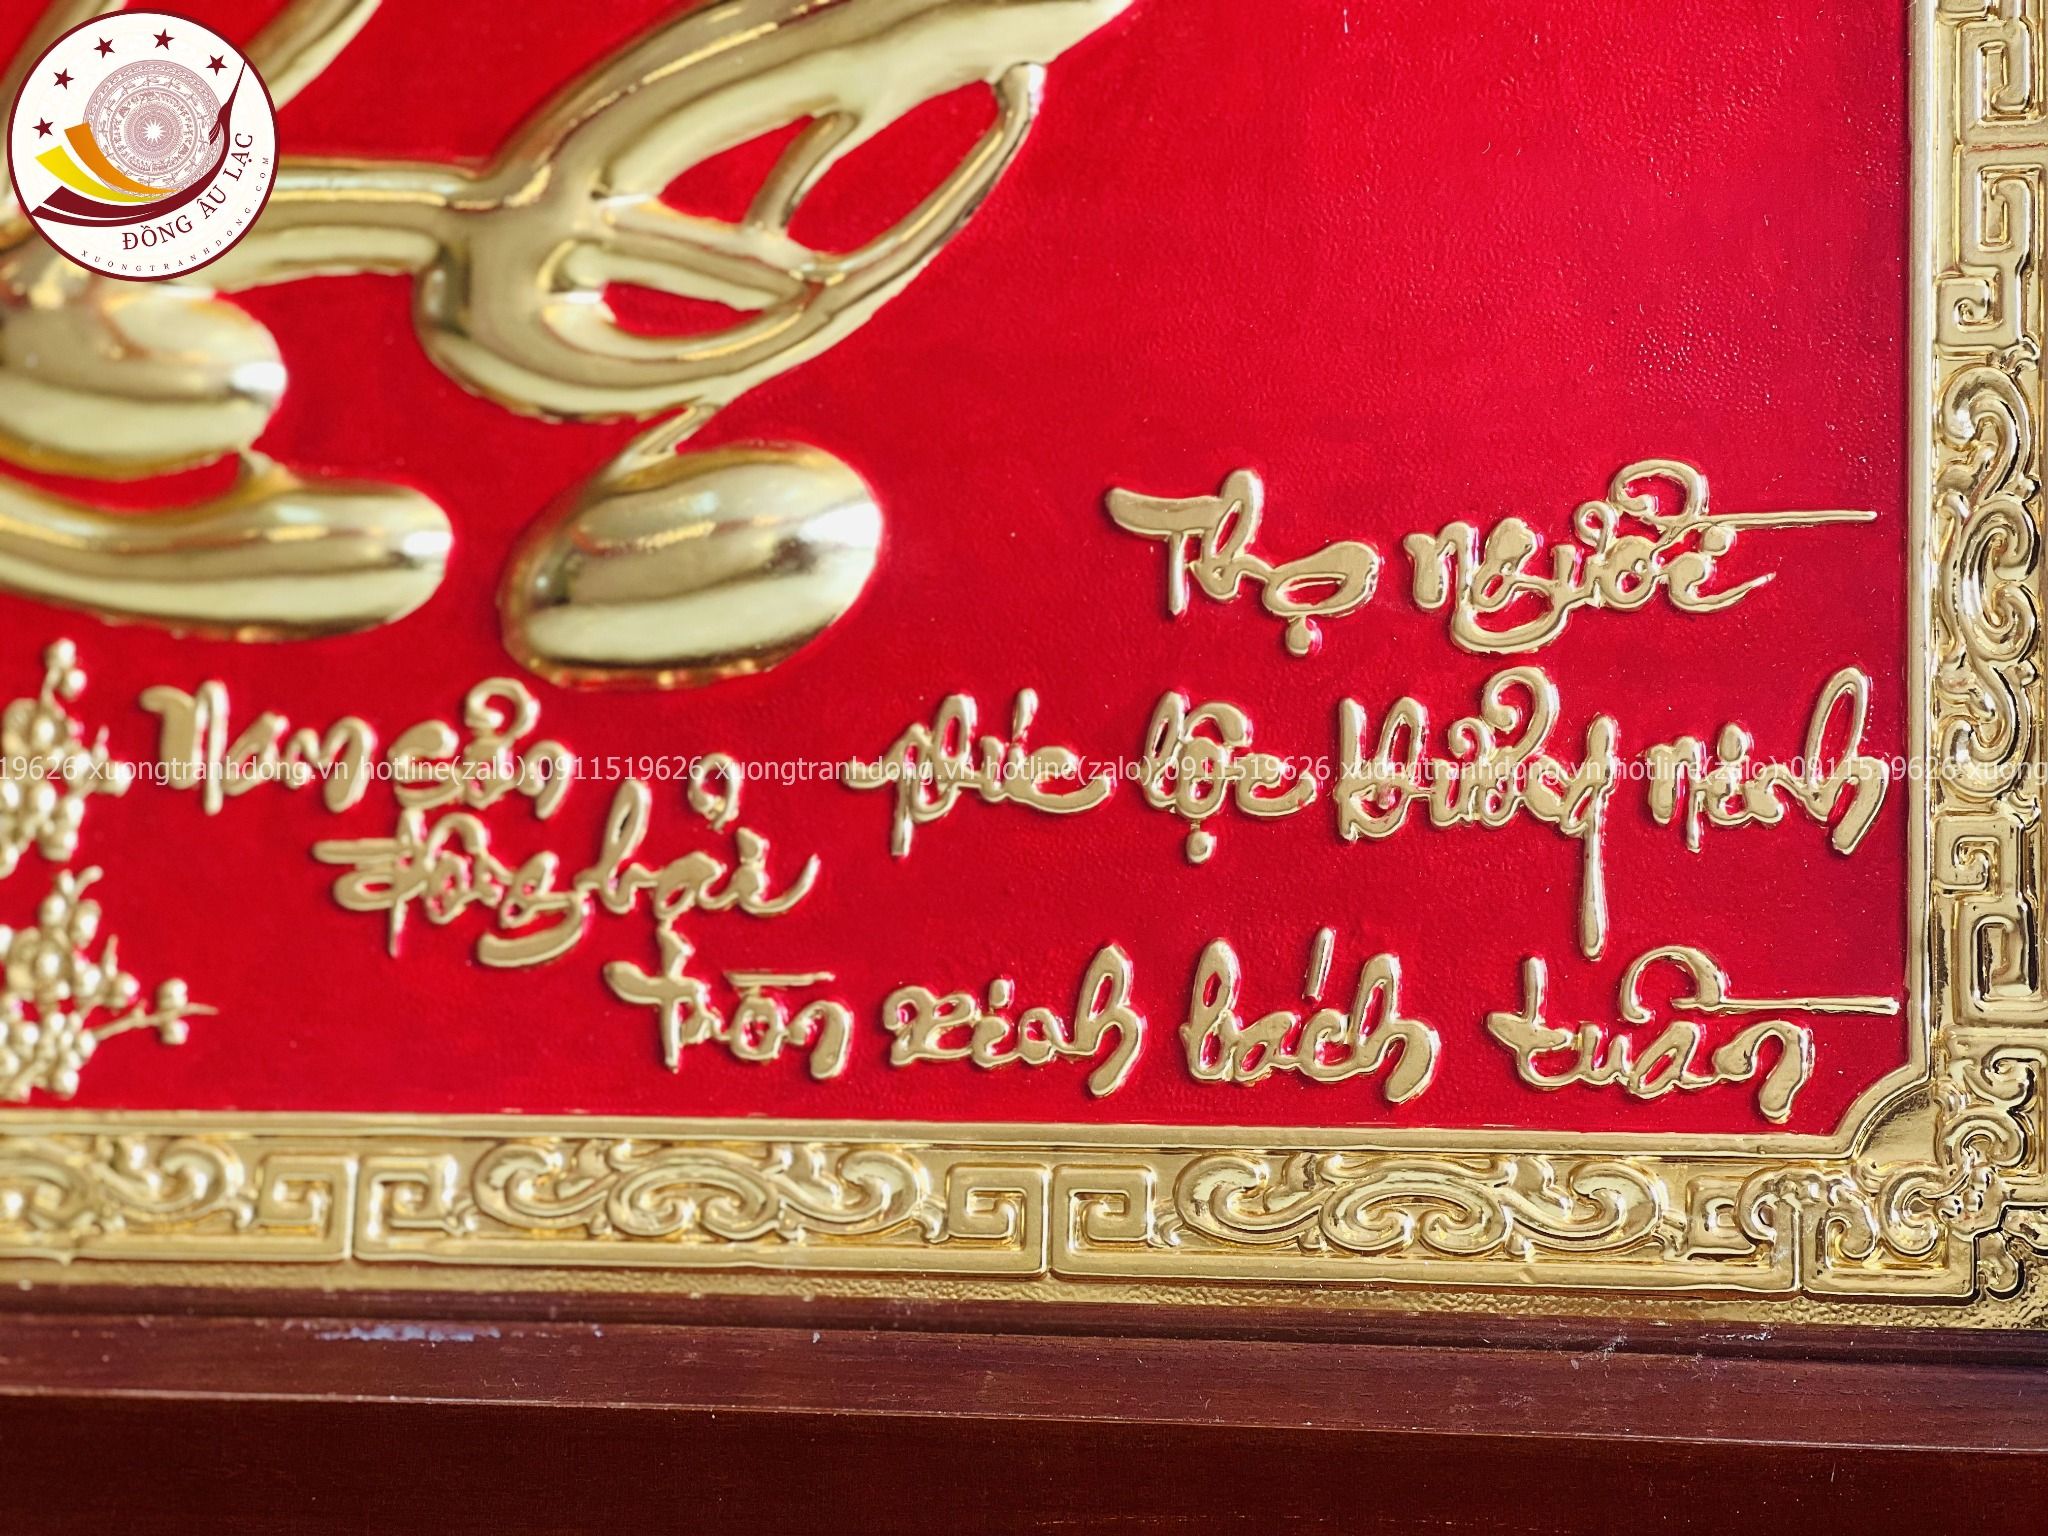 ĐỒNG ÂU LẠC
XUONGTRANHDONG.COM
Thọ người
Nam Sơn phúc lộc khương ninh
đông hải
trồn xinh bách tuần
19626 xuongtranhdong.vn hotline(zalo):0911519626 xuongtranhdong.vn hotline(zalo):0911519626 xuongtranhdong.vn hotline(zalo):0911519626 xuong